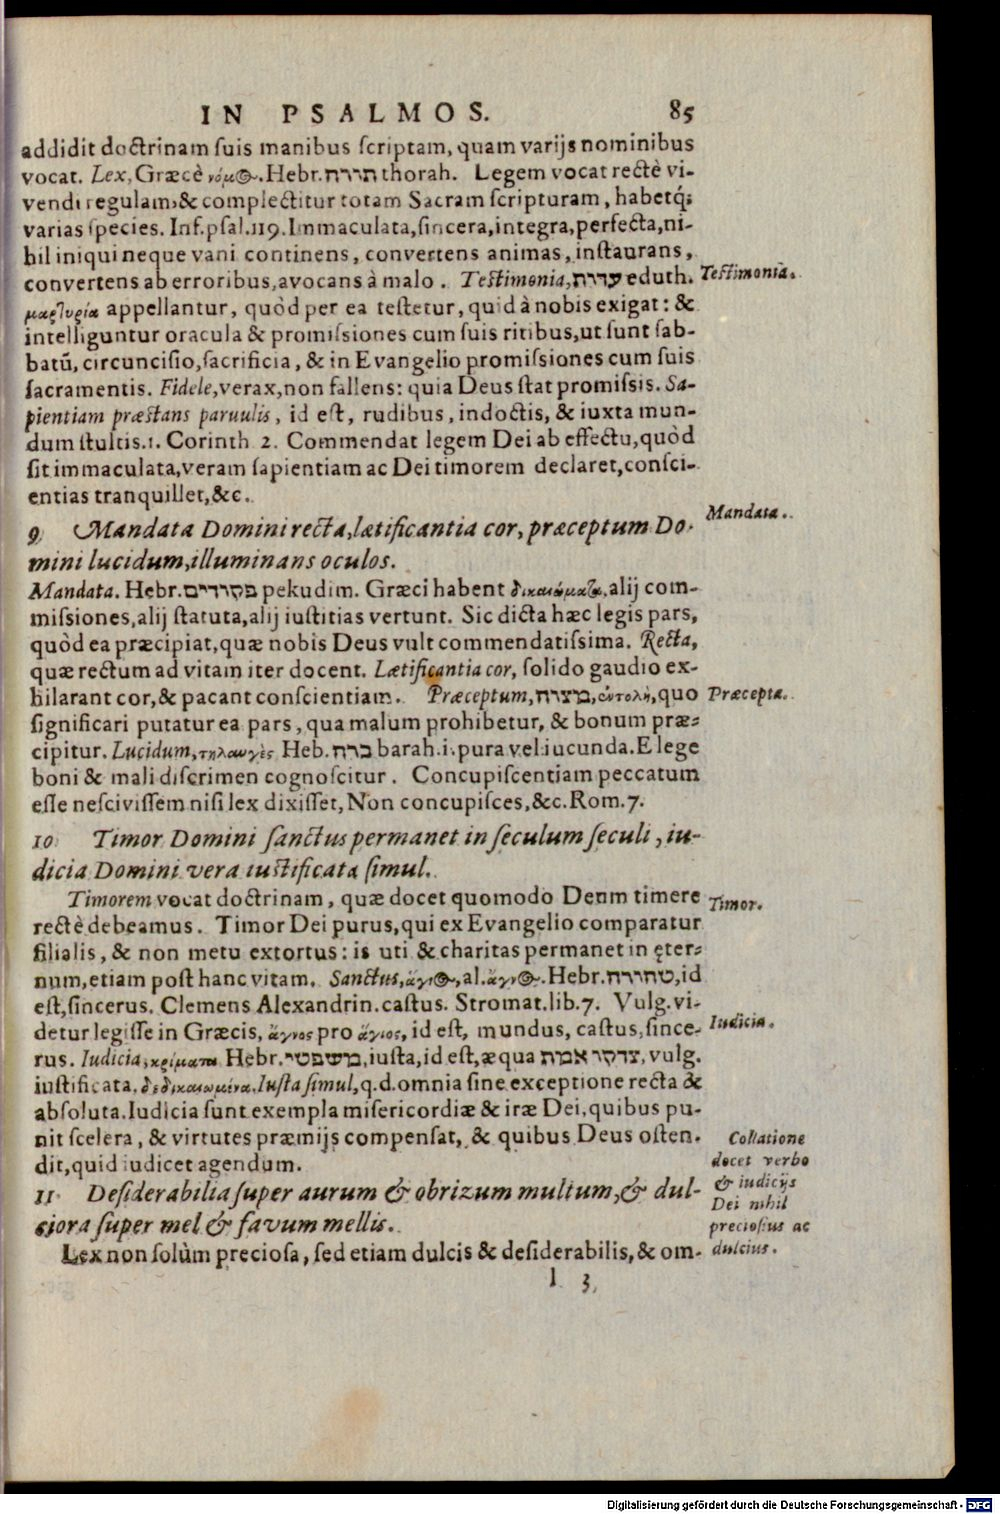 IN PSALMOS. 85
addidit doctrinam suis manibus scriptam, quam varijs nominibus
vocat. Lex, Græcè νόμος. Hebr. תורה thorah. Legem vocat rectè vi-
vendi regulam, & complectitur totam Sacram scripturam, habetq́;
varias species. Inf. psal. 119. Immaculata, sincera, integra, perfecta, ni-
hil iniqui neque vani continens, convertens animas, instaurans,
convertens ab erroribus, avocans à malo. Testimonia, עדות eduth.
Testimonia.
μαρτυρία appellantur, quòd per ea testetur, quid à nobis exigat: &
intelliguntur oracula & promissiones cum suis ritibus, ut sunt sab-
batū, circuncisio, sacrificia, & in Evangelio promissiones cum suis
sacramentis. Fidele, verax, non fallens: quia Deus stat promissis. Sa-
pientiam præstans parvulis, id est, rudibus, indoctis, & iuxta mun-
dum stultis. 1. Corinth 2. Commendat legem Dei ab effectu, quòd
sit immaculata, veram sapientiam ac Dei timorem declaret, consci-
entias tranquillet, &c.
9 Mandata Domini recta, lætificantia cor, præceptum Do-
Mandata.
mini lucidum, illuminans oculos.
Mandata. Hebr. פקודים pekudim. Græci habent δικαιώματα, alij com-
missiones, alij statuta, alij iustitias vertunt. Sic dicta hæc legis pars,
quòd ea præcipiat, quæ nobis Deus vult commendatissima. Recta,
quæ rectum ad vitam iter docent. Lætificantia cor, solido gaudio ex-
hilarant cor, & pacant conscientiam. Præceptum, מצות, ἐντολὴ, quo
Præcepta.
significari putatur ea pars, qua malum prohibetur, & bonum præ-
cipitur. Lucidum, τηλαυγὲς Heb. ברה barah. i. pura vel iucunda. E lege
boni & mali discrimen cognoscitur. Concupiscentiam peccatum
esse nescivissem nisi lex dixisset, Non concupisces, &c. Rom. 7.
10 Timor Domini sanctus permanet in seculum seculi, iu-
dicia Domini vera iustificata simul.
Timorem vocat doctrinam, quæ docet quomodo Deum timere
Timor.
rectè debeamus. Timor Dei purus, qui ex Evangelio comparatur
filialis, & non metu extortus: is uti & charitas permanet in ęter-
num, etiam post hanc vitam. Sanctus, ἅγιος, al. ἅγνος. Hebr. טהורה, id
est, sincerus. Clemens Alexandrin. castus. Stromat. lib. 7. Vulg. vi-
detur legisse in Græcis, ἅγνος pro ἅγιος, id est, mundus, castus, since-
Iudicia.
rus. Iudicia, κρίματα Hebr. משפטי, iusta, id est, æqua צדקו אמת, vulg.
iustificata. δεδικαιωμένα. Iusta simul, q.d. omnia sine exceptione recta &
absoluta. Iudicia sunt exempla misericordiæ & iræ Dei, quibus pu-
nit scelera, & virtutes præmijs compensat, & quibus Deus osten-
dit, quid iudicet agendum.
11 Desiderabilia super aurum & obrizum multum, & dul-
ciora super mel & favum mellis.
Collatione
docet verbo
& iudicijs
Dei nihil
preciosius ac
dulcius.
Lex non solùm preciosa, sed etiam dulcis & desiderabilis, & om-
l 3
Digitalisierung gefördert durch die Deutsche Forschungsgemeinschaft - DFG